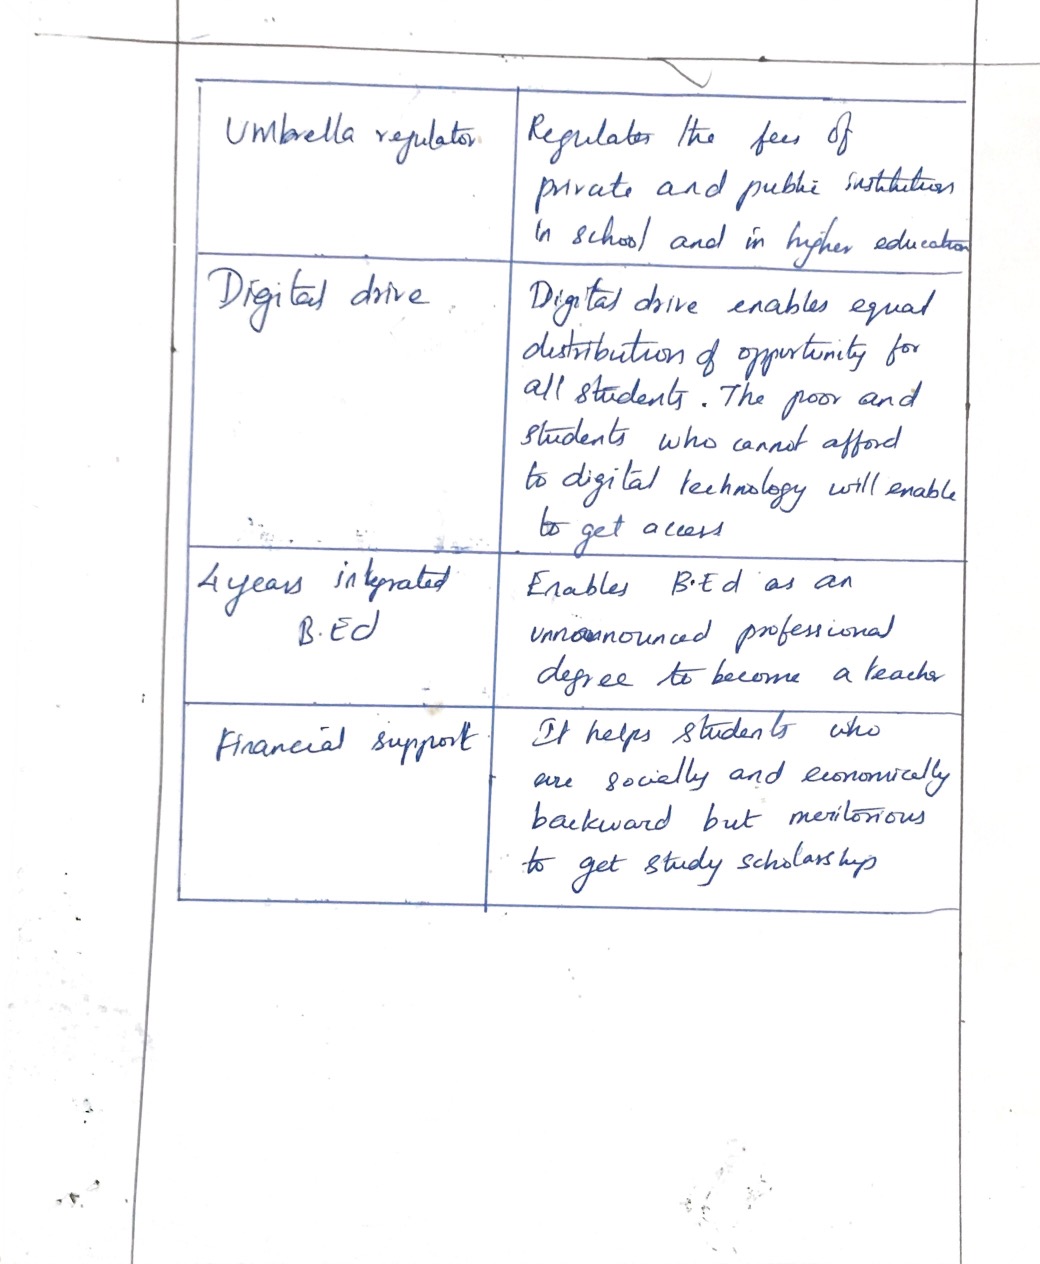 Umbrella regulator
Regulates the fees of
private and public institutions
in school and in higher education
Digital drive
Digital drive enables equal
distribution of opportunity for
all students. The poor and
students who cannot afford
to digital technology will enable
to get access
4 years integrated
B.Ed
Enables B.Ed as an
professional
degree to become a teacher
Financial support
It helps students who
are socially and economically
backward but meritorious
to get study scholarship